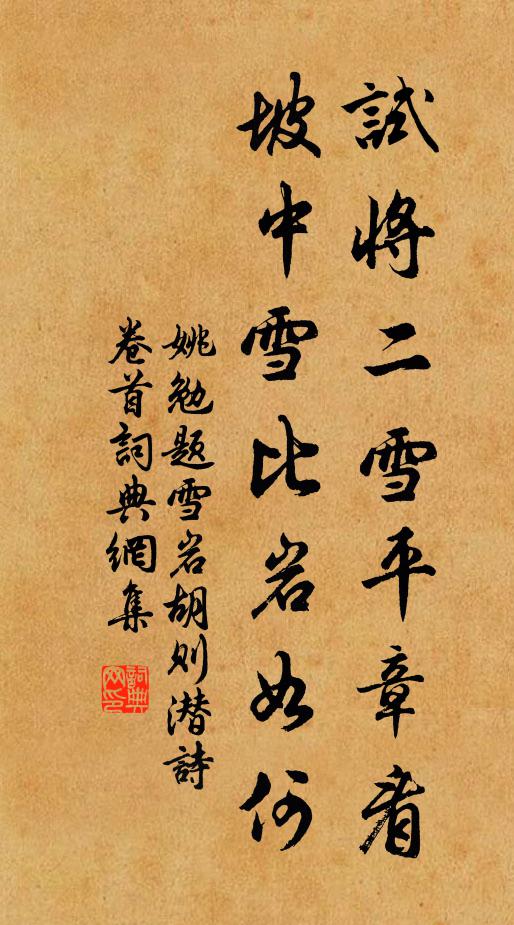 試將二雪平章看
坡中雪比岩如何
姚勉題雪岩胡則潛詩
卷首詞典網集
詞典网印